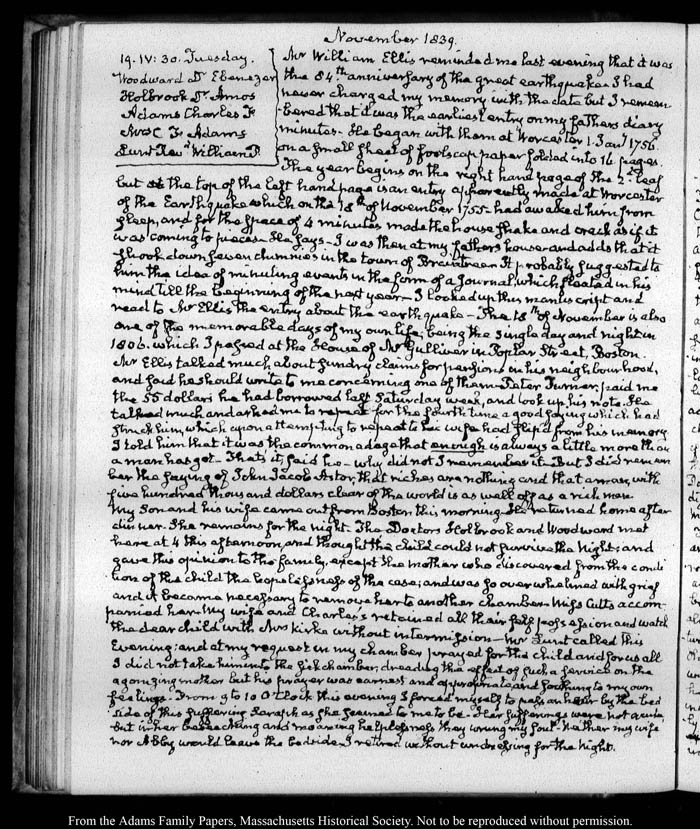 November 1839.
19. IV: 30. Tuesday.
Woodward Dr Ebenezer
Holbrook Dr. Amos
Adams Charles F
Mrs C. F. Adams
Lunt Revd William P
Mr William Ellis reminded me last evening that it was
the 84th anniversary of the great earthquake. I had
never charged my memory with the date but I remem-
bered that it was the earliest entry on my fathers diary
minutes. He began with them at Worcester 1. Jany 1756.
on a small sheet of foolscap paper folded into 16 pages.
The year begins on the right hand page of the 2d leaf
but at the top of the left hand page is an entry apparently made at Worcester
of the Earthquake which on the 18th of November 1755 had awaked him from
sleep, and for the space of 4 minutes made the house shake and crack as if it
was coming to pieces. He says—I was then at my fathers house and adds that it
shook down seven chimnies in the town of Braintree. It probably suggested to
him the idea of minuting events in the form of a Journal, which floated in his
mind till the beginning of the next year—I looked up this manuscript and
read to Mr Ellis the entry about the earthquake—The 18th of November is also
one of the memorable days of my own life; being the single day and night in
1806. which I passed at the House of Mr Gulliver in Poplar Street, Boston.
Mr Ellis talked much about sundry claims for pensions in his neighbourhood,
and said he should write to me concerning one of them—Peter Turner, paid me
the 55 dollars he had borrowed last Saturday week, and took up his note. He
talked much, and asked me to repeat for the fourth time a good saying which had
struck him, which upon attempting to repeat to his wife had slip'd from his memory
I told him that it was the common adage that enough is always a little more than
a man has got—Thats it, said he—why did not I remember it—But I did remem
ber the saying of John Jacob Astor, that riches are nothing and that a man, with
five hundred thousand dollars clear of the world is as well off as a rich man
My Son and his wife came out from Boston this morning. He returned home after
dinner. She remains for the night. The Doctors Holbrook and Woodward met
here at 4 this afternoon, and thought the child could not survive the Night; and
gave this opinion to the family, except the mother who discovered from the condi
tion of the child the hopelessness of the case; and was so overwhelmed with grief
and it became necessary to remove her to another chamber. Miss Cutts accom-
panied her. My wife and Charles's retained all their self possession and watch
the dear child with Mrs Kirke without intermission—Mr Lunt called this
Evening; and at my request in my chamber prayed for the child and for us all
I did not take him into the sick chamber, dreading the effect of such a service on the
agonizing mother but his prayer was earnest and appropriate, and soothing to my own
feelings. From 9 to 10 O'Clock this evening I forced myself to pass an hour by the bed
side of this suffering Seraph as she seemed to me to be. Her sufferings were not acute,
but in her beseeching and moaning helplessness they wrung my Soul. Neither my wife
nor Abby would leave the bedside. I retired without undressing for the night.
From the Adams Family Papers, Massachusetts Historical Society. Not to be reproduced without permission.